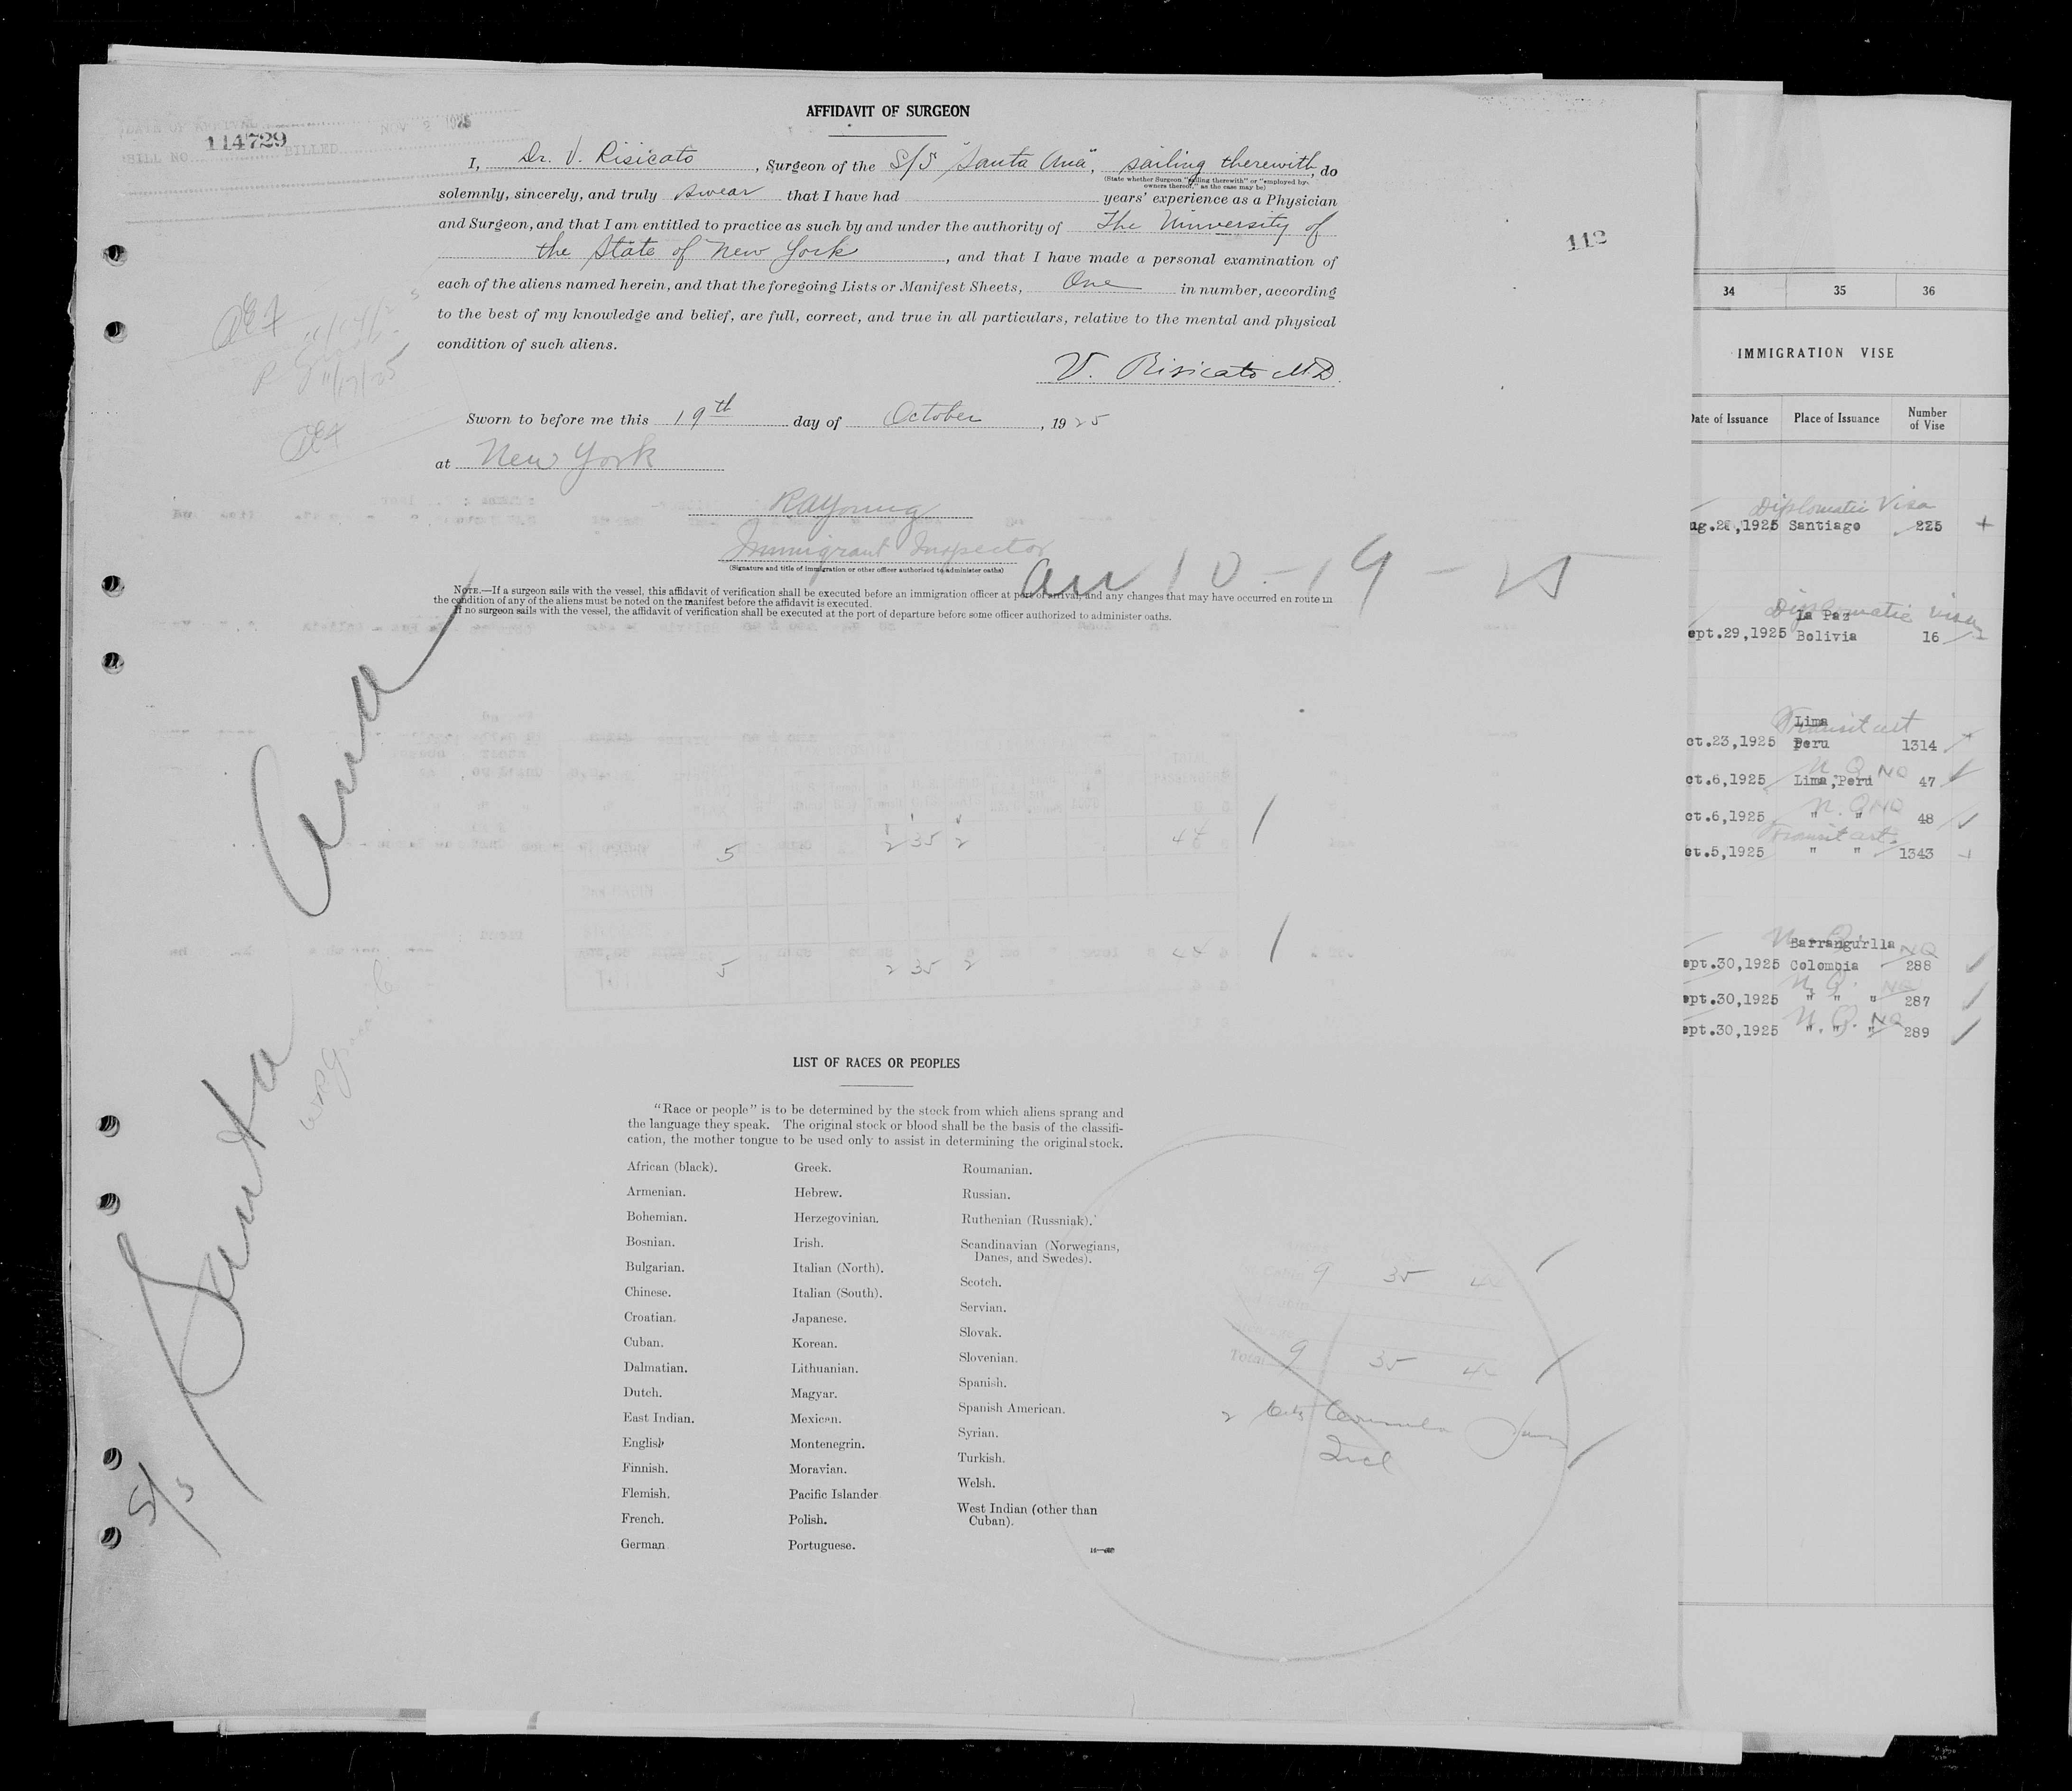 AFFIDAVIT OF SURGEON
DATE OF ARRIVAL NOV 2 1925
BILL NO. 114729 BILLED
I, Dr. V. Risicato, Surgeon of the S/S "Santa Ana", sailing therewith, do
(State whether Surgeon "sailing therewith" or "employed by owners thereof," as the case may be)
solemnly, sincerely, and truly swear that I have had years' experience as a Physician
and Surgeon, and that I am entitled to practice as such by and under the authority of The University of
the State of New York, and that I have made a personal examination of
each of the aliens named herein, and that the foregoing Lists or Manifest Sheets, One in number, according
to the best of my knowledge and belief, are full, correct, and true in all particulars, relative to the mental and physical
condition of such aliens.
V. Risicato M.D.
Sworn to before me this 19th day of October, 1925
at New York
RAYoung
Immigrant Inspector
(Signature and title of immigration or other officer authorized to administer oaths)
10-19-25
NOTE.—If a surgeon sails with the vessel, this affidavit of verification shall be executed before an immigration officer at port of arrival, and any changes that may have occurred en route in
the condition of any of the aliens must be noted on the manifest before the affidavit is executed.
If no surgeon sails with the vessel, the affidavit of verification shall be executed at the port of departure before some officer authorized to administer oaths.
112
S/S Santa Ana
5 2 35 2 44
5 2 35 2 44
LIST OF RACES OR PEOPLES
"Race or people" is to be determined by the stock from which aliens sprang and
the language they speak. The original stock or blood shall be the basis of the classifi-
cation, the mother tongue to be used only to assist in determining the original stock.
African (black).
Armenian.
Bohemian.
Bosnian.
Bulgarian.
Chinese.
Croatian.
Cuban.
Dalmatian.
Dutch.
East Indian.
English
Finnish.
Flemish.
French.
German
Greek.
Hebrew.
Herzegovinian.
Irish.
Italian (North).
Italian (South).
Japanese.
Korean.
Lithuanian.
Magyar.
Mexican.
Montenegrin.
Moravian.
Pacific Islander
Polish.
Portuguese.
Roumanian.
Russian.
Ruthenian (Russniak).
Scandinavian (Norwegians,
Danes, and Swedes).
Scotch.
Servian.
Slovak.
Slovenian.
Spanish.
Spanish American.
Syrian.
Turkish.
Welsh.
West Indian (other than
Cuban).
9 35 44
Total 9 35 44
34 35 36
IMMIGRATION VISE
Date of Issuance Place of Issuance Number of Vise
Diplomatic Visa
ug.28,1925 Santiago 225
Diplomatic Visa
La Paz
ept.29,1925 Bolivia 16
Lima
Transit cert
ct.23,1925 Peru 1314
N.Q. NQ
ct.6,1925 Lima,Peru 47
N.Q. NQ
ct.6,1925 " " 48
Transit cert.
ct.5,1925 " " 1343
Barrangurlla
N.Q. NQ
ept.30,1925 Colombia 288
N.Q. NQ
ept.30,1925 " " " 287
N.Q. NQ
ept.30,1925 " " " 289